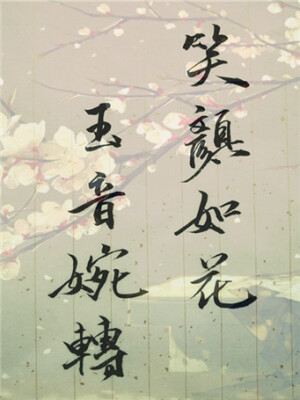 笑顔如花
玉音婉轉